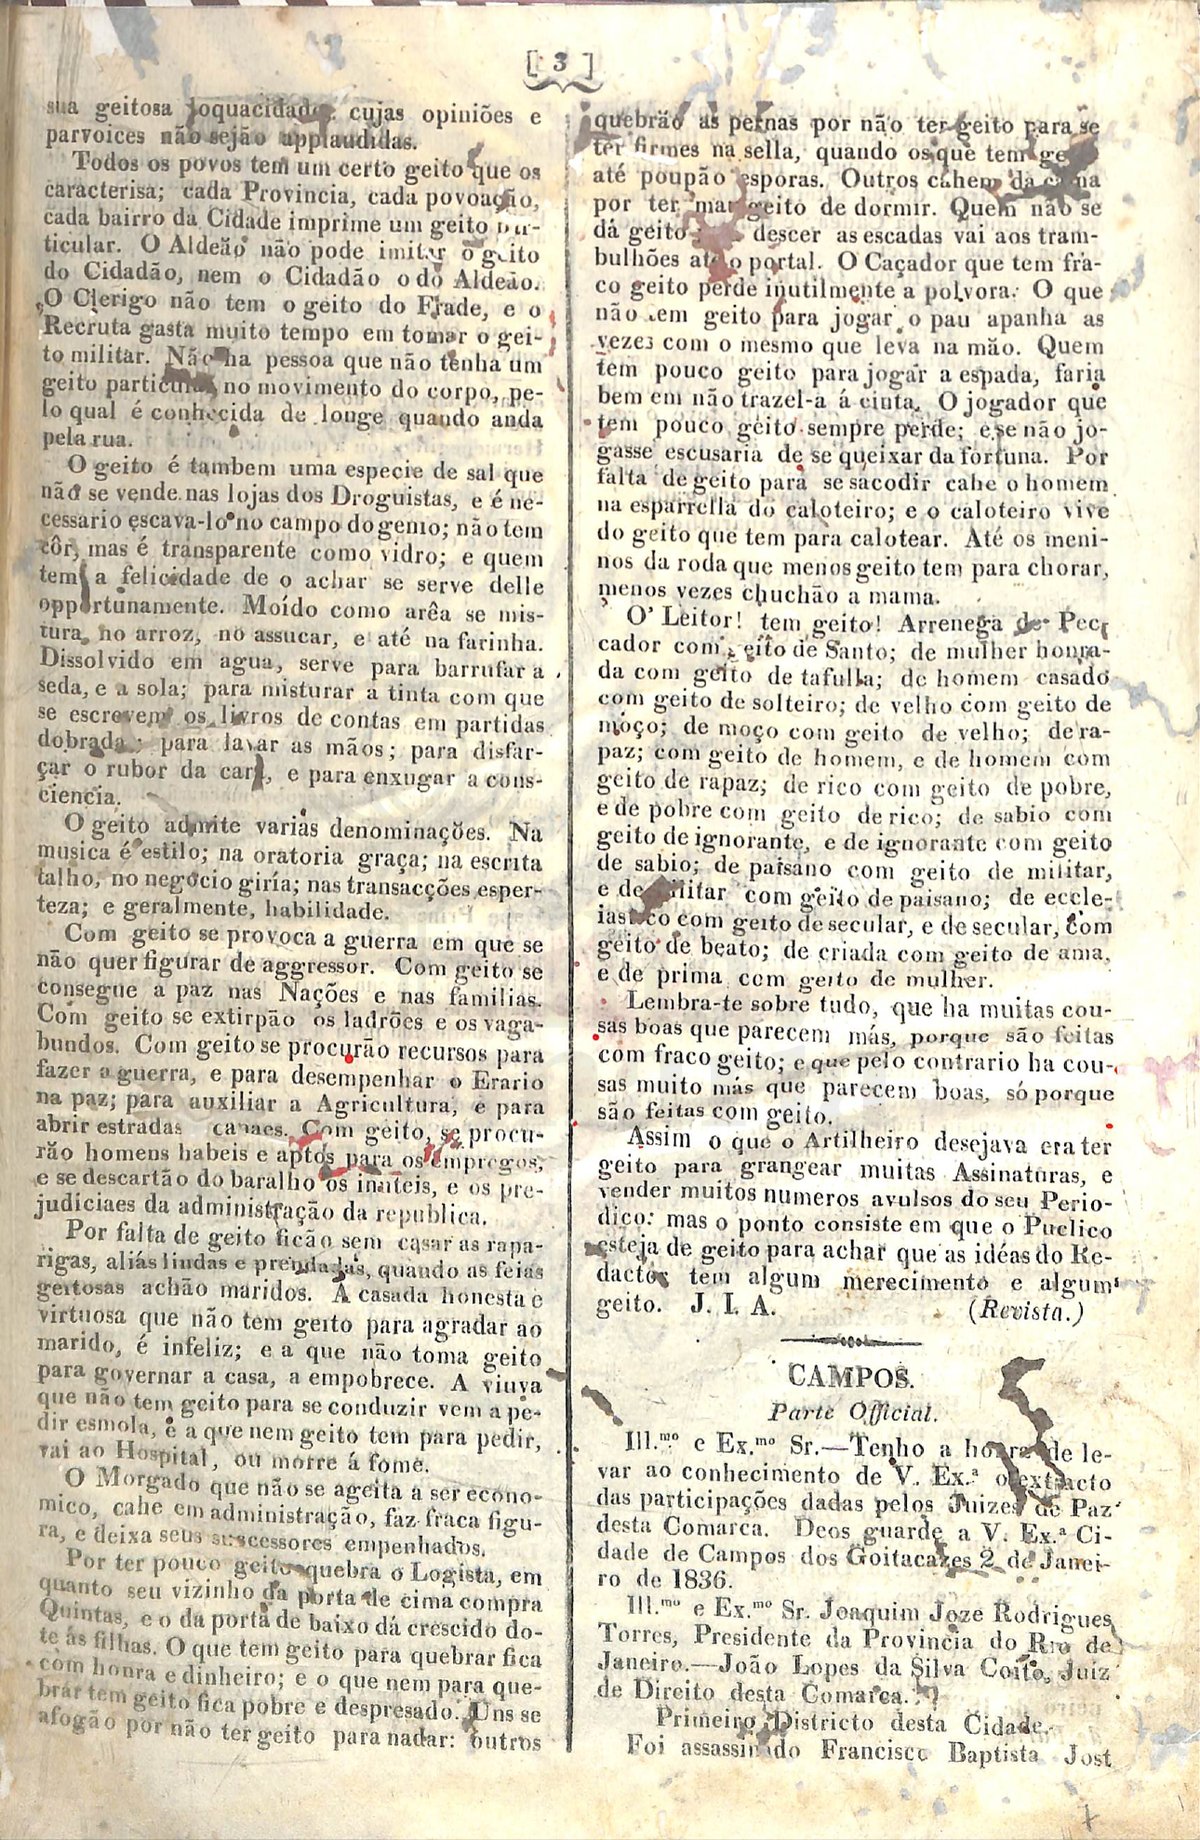 [ 3 ]
sua geitosa loquacidade, cujas opiniões e
parvoices não sejão applaudidas.
Todos os povos tem um certo geito que os
caracterisa; cada Provincia, cada povoação,
cada bairro da Cidade imprime um geito par-
ticular. O Aldeão não pode imitar o geito
do Cidadão, nem o Cidadão o do Aldeão.
O Clerigo não tem o geito do Frade, e o
Recruta gasta muito tempo em tomar o gei-
to militar. Não ha pessoa que não tenha um
geito particular no movimento do corpo, pe-
lo qual é conhecida de longe quando anda
pela rua.
O geito é tambem uma especie de sal que
não se vende nas lojas dos Droguistas, e é ne-
cessario escava-lo no campo do genio; não tem
côr, mas é transparente como vidro; e quem
tem a felicidade de o achar se serve delle
opportunamente. Moído como arêa se mis-
tura no arroz, no assucar, e até na farinha.
Dissolvido em agua, serve para barrufar a
seda, e a sola; para misturar a tinta com que
se escrevem os livros de contas em partidas
dobradas; para lavar as mãos; para disfar-
çar o rubor da cara, e para enxugar a cons-
ciencia.
O geito admite varias denominações. Na
musica é estilo; na oratoria graça; na escrita
talho, no negocio giría; nas transacções esper-
teza; e geralmente, habilidade.
Com geito se provoca a guerra em que se
não quer figurar de aggressor. Com geito se
consegue a paz nas Nações e nas familias.
Com geito se extirpão os ladrões e os vaga-
bundos. Com geito se procurão recursos para
fazer a guerra, e para desempenhar o Erario
na paz; para auxiliar a Agricultura, e para
abrir estradas canaes. Com geito, se procu-
rão homens habeis e aptos para os empregos,
e se descartão do baralho os inuteis, e os pre-
judíciaes da administração da republica.
Por falta de geito ficão sem casar as rapa-
rigas, aliás lindas e prendadas, quando as feias
geitosas achão maridos. A casada honesta e
virtuosa que não tem geito para agradar ao
marido, é infeliz; e a que não toma geito
para governar a casa, a empobrece. A viuva
que não tem geito para se conduzir vem a pe-
dir esmola, e a que nem geito tem para pedir,
vai ao Hospital, ou morre á fome.
O Morgado que não se ageita a ser econo-
mico, cahe em administração, faz fraca figu-
ra, e deixa seus successores empenhados.
Por ter pouco geito quebra o Logista, em
quanto seu vizinho da porta de cima compra
Quintas, e o da porta de baixo dá crescido do-
te ás filhas. O que tem geito para quebrar fica
com honra e dinheiro; e o que nem para que-
brar tem geito fica pobre e despresado. Uns se
afogão por não ter geito para nadar: outros
quebrão as pernas por não ter geito para se
ter firmes na sella, quando os que tem
até poupão esporas. Outros cahem da cama
por ter mau geito de dormir. Quem não se
dá geito descer as escadas vai aos tram-
bulhões até o portal. O Caçador que tem fra-
co geito perde inutilmente a polvora. O que
não tem geito para jogar o pau apanha as
vezes com o mesmo que leva na mão. Quem
tem pouco geito para jogar a espada, faria
bem em não trazel-a á cinta. O jogador que
tem pouco geito sempre perde; e se não jo-
gasse escusaria de se queixar da fortuna. Por
falta de geito para se sacodir cahe o homem
na esparrella do caloteiro; e o caloteiro vive
do geito que tem para calotear. Até os meni-
nos da roda que menos geito tem para chorar,
menos vezes chuchão a mama.
O' Leitor! tem geito! Arrenega de Pec-
cador com geito de Santo; de mulher honra-
da com geito de tafulha; de homem casado
com geito de solteiro; de velho com geito de
moço; de moço com geito de velho; de ra-
paz; com geito de homem, e de homem com
geito de rapaz; de rico com geito de pobre,
e de pobre com geito de rico; de sabio com
geito de ignorante, e de ignorante com geito
de sabio; de paisano com geito de militar,
e de militar com geito de paisano; de eccle-
iastico com geito de secular, e de secular, com
geito de beato; de criada com geito de ama,
e de prima com geito de mulher.
Lembra-te sobre tudo, que ha muitas cou-
sas boas que parecem más, porque são feitas
com fraco geito; e que pelo contrario ha cou-
sas muito más que parecem boas, só porque
são feitas com geito.
Assim o que o Artilheiro desejava era ter
geito para grangear muitas Assinaturas, e
vender muitos numeros avulsos do seu Perio-
dico: mas o ponto consiste em que o Puclico
esteja de geito para achar que as idéas do Re-
dactor tem algum merecimento e algum
geito. J. I. A. (Revista.)
CAMPOS.
Parte Official.
Ill.mo e Ex.mo Sr.—Tenho a honra de le-
var ao conhecimento de V. Ex.a o extracto
das participações dadas pelos Juizes de Paz
desta Comarca. Deos guarde a V. Ex.a Ci-
dade de Campos dos Goitacazes 2 de Janei-
ro de 1836.
Ill.mo e Ex.mo Sr. Joaquim Joze Rodrigues
Torres, Presidente da Provincia do Rio de
Janeiro.—João Lopes da Silva Coito, Juiz
de Direito desta Comarca.
Primeiro Districto desta Cidade.
Foi assassinado Francisco Baptista Jost